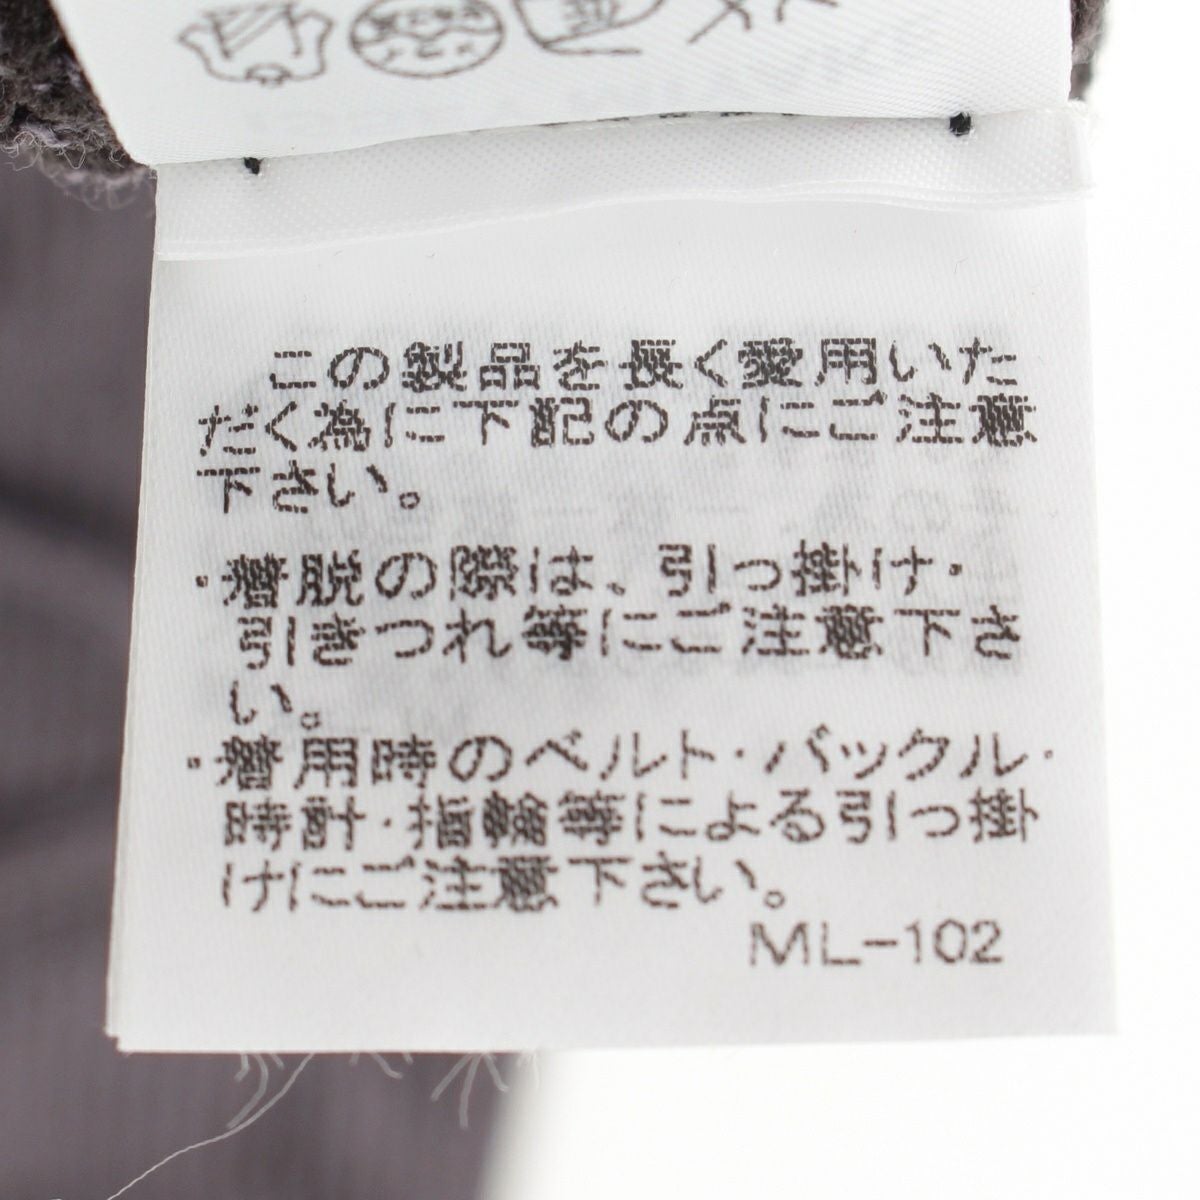 この製品を長く愛用いた
だく為に下記の点にご注意
下さい。
・着脱の際は、引っ掛け・
引きつれ等にご注意下さ
い。
・着用時のベルト・バックル・
時計・指輪等による引っ掛
けにご注意下さい。
ML-102